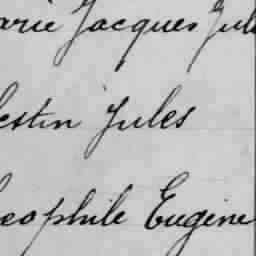 arie Jacques Jul
estin Jules
eophile Eugène